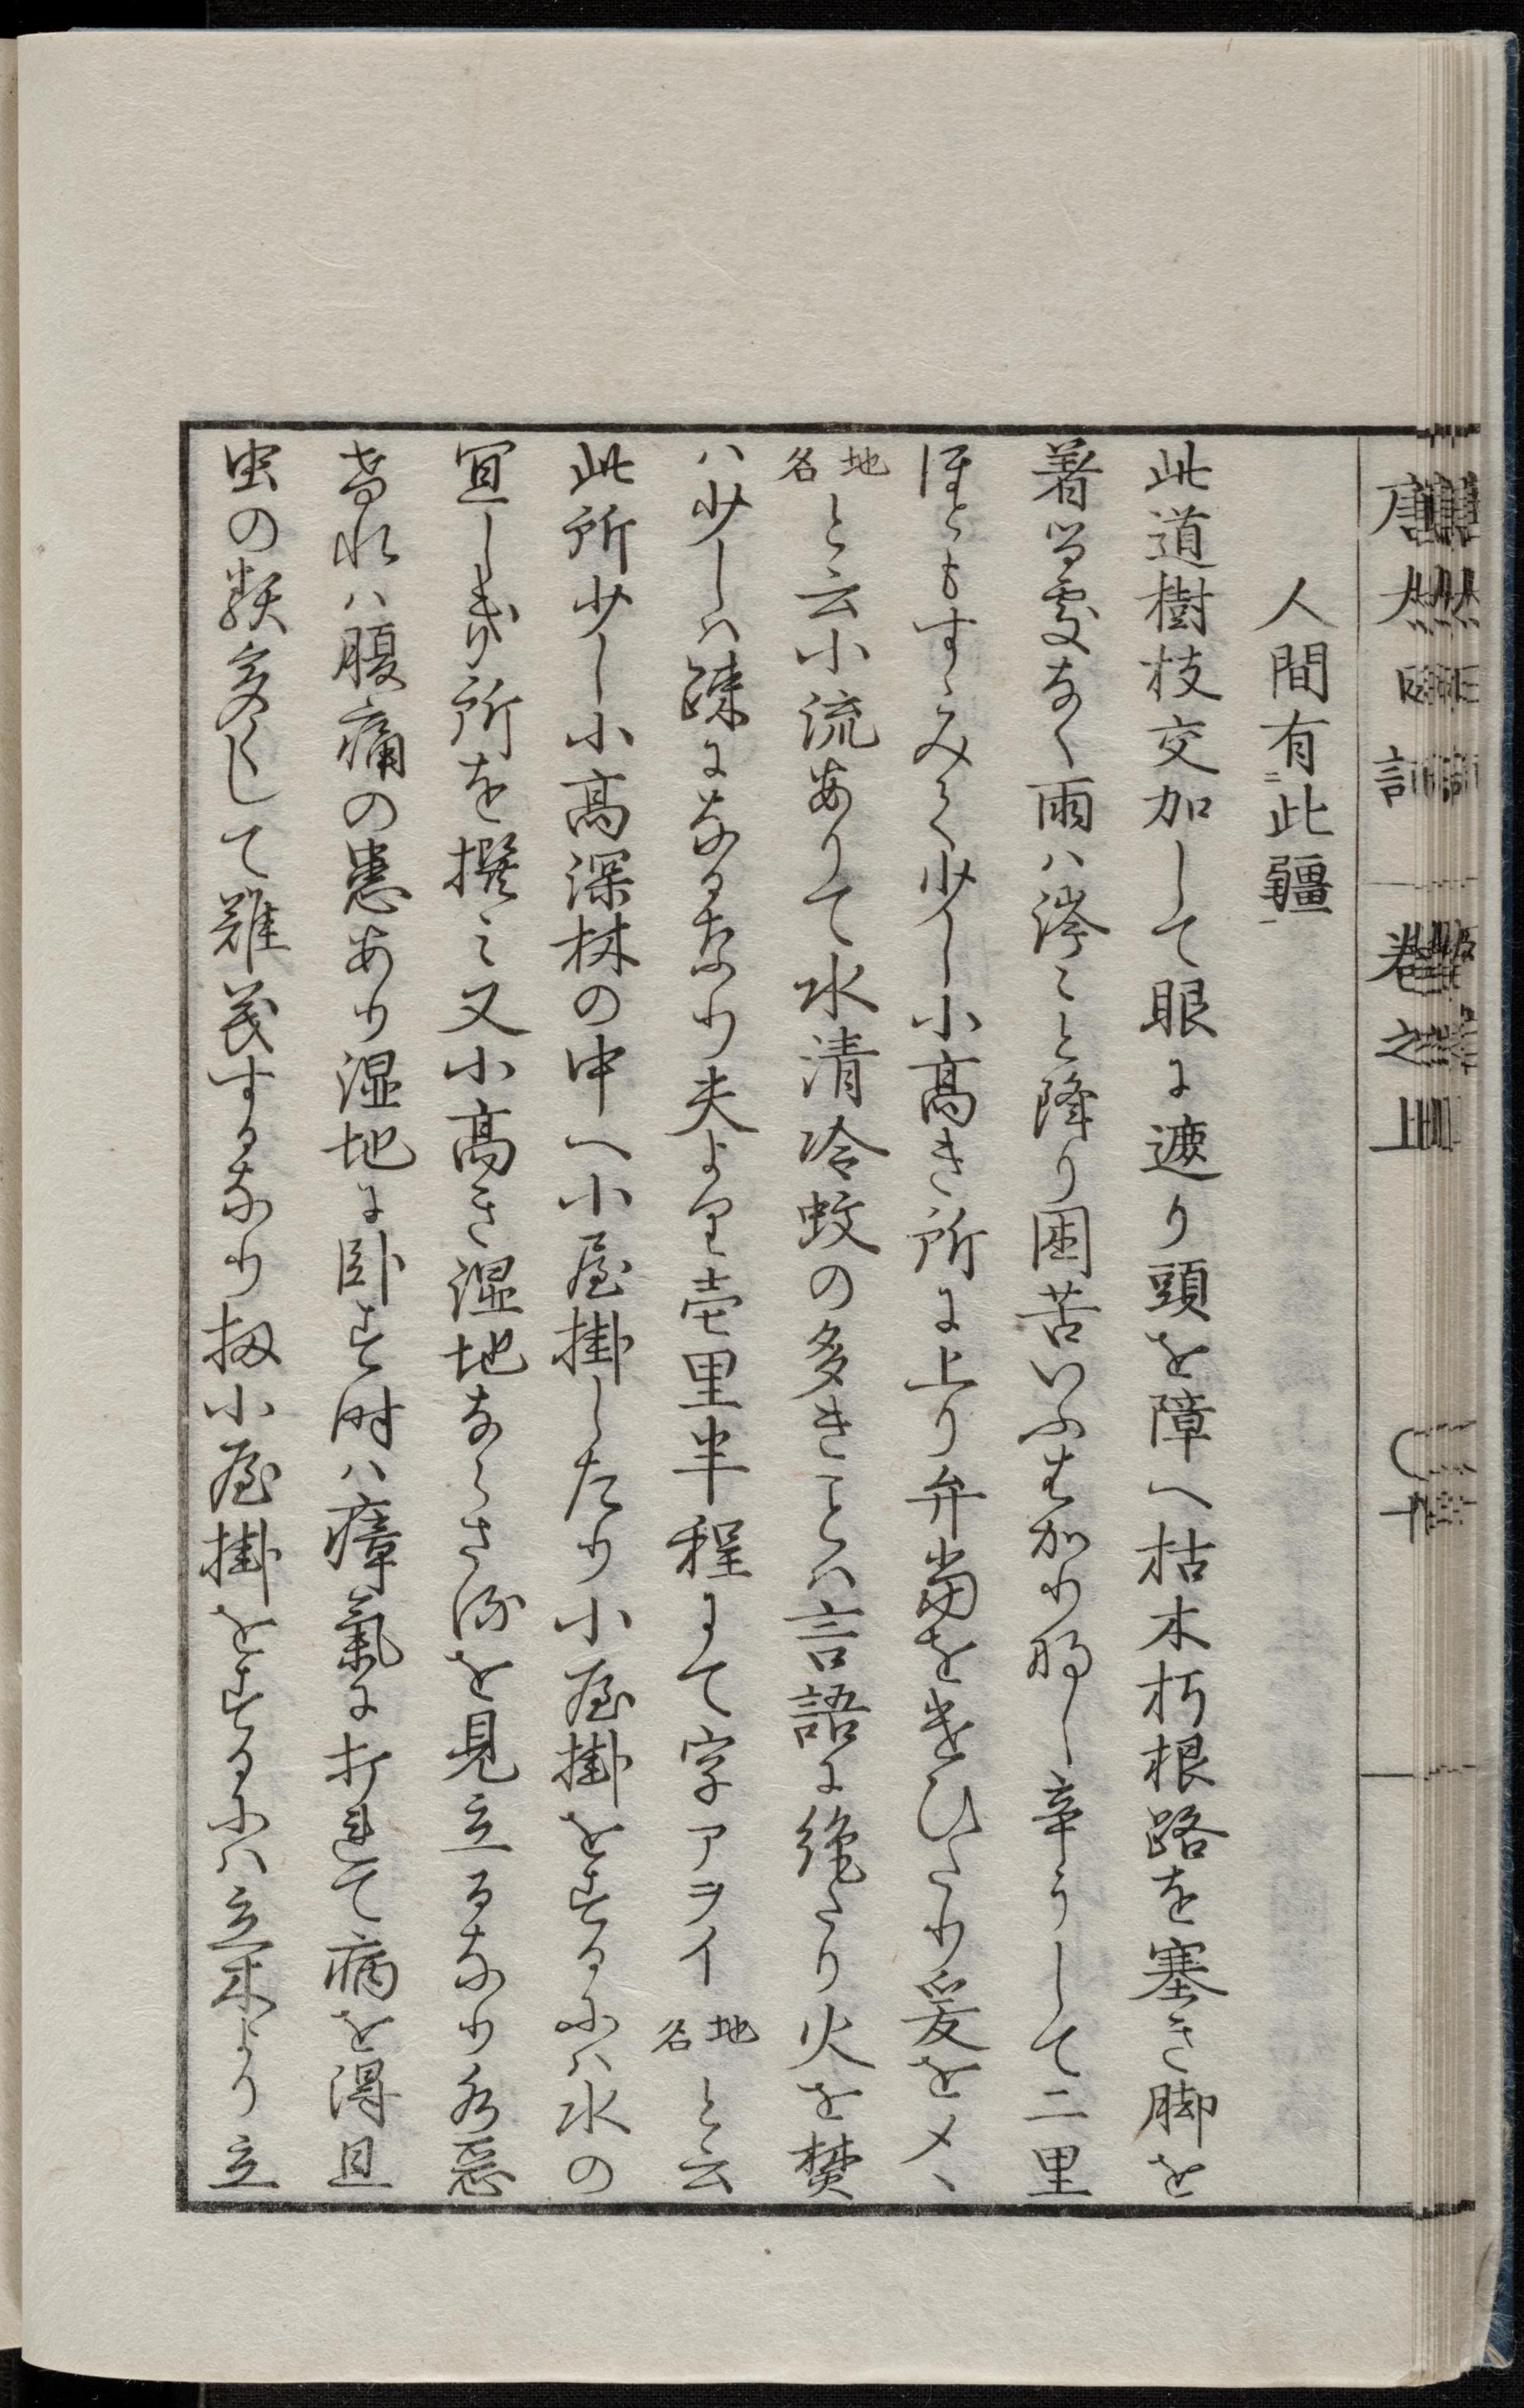 人間有二此疆一
此道樹枝交加して眼に遮り頭を障へ枯木朽根路を塞き脚を
著る處なく雨ハ滂〻と降り困苦いふはかり那し辛うして二里
ほともすゝみて少し小高き所に上り弁當をつひたり爰をメヽ
地名と云小流ありて水清冷蚊の多きことハ言語に絶たり火を焚
ハ少しハ疎になるなり夫より壱里半程にて字アヲイ地名と云
此所少し小高深林の中へ小屋掛したり小屋掛をするにハ水の
宜しき所を撰ミ又小高き湿地ならさ流を見立るなり水悪
しけれハ腹痛の患あり湿地に卧す時ハ瘴氣に打れて病を得且
虫の類多くして難義するなり扨小屋掛をするにハ立木より立
卷之上